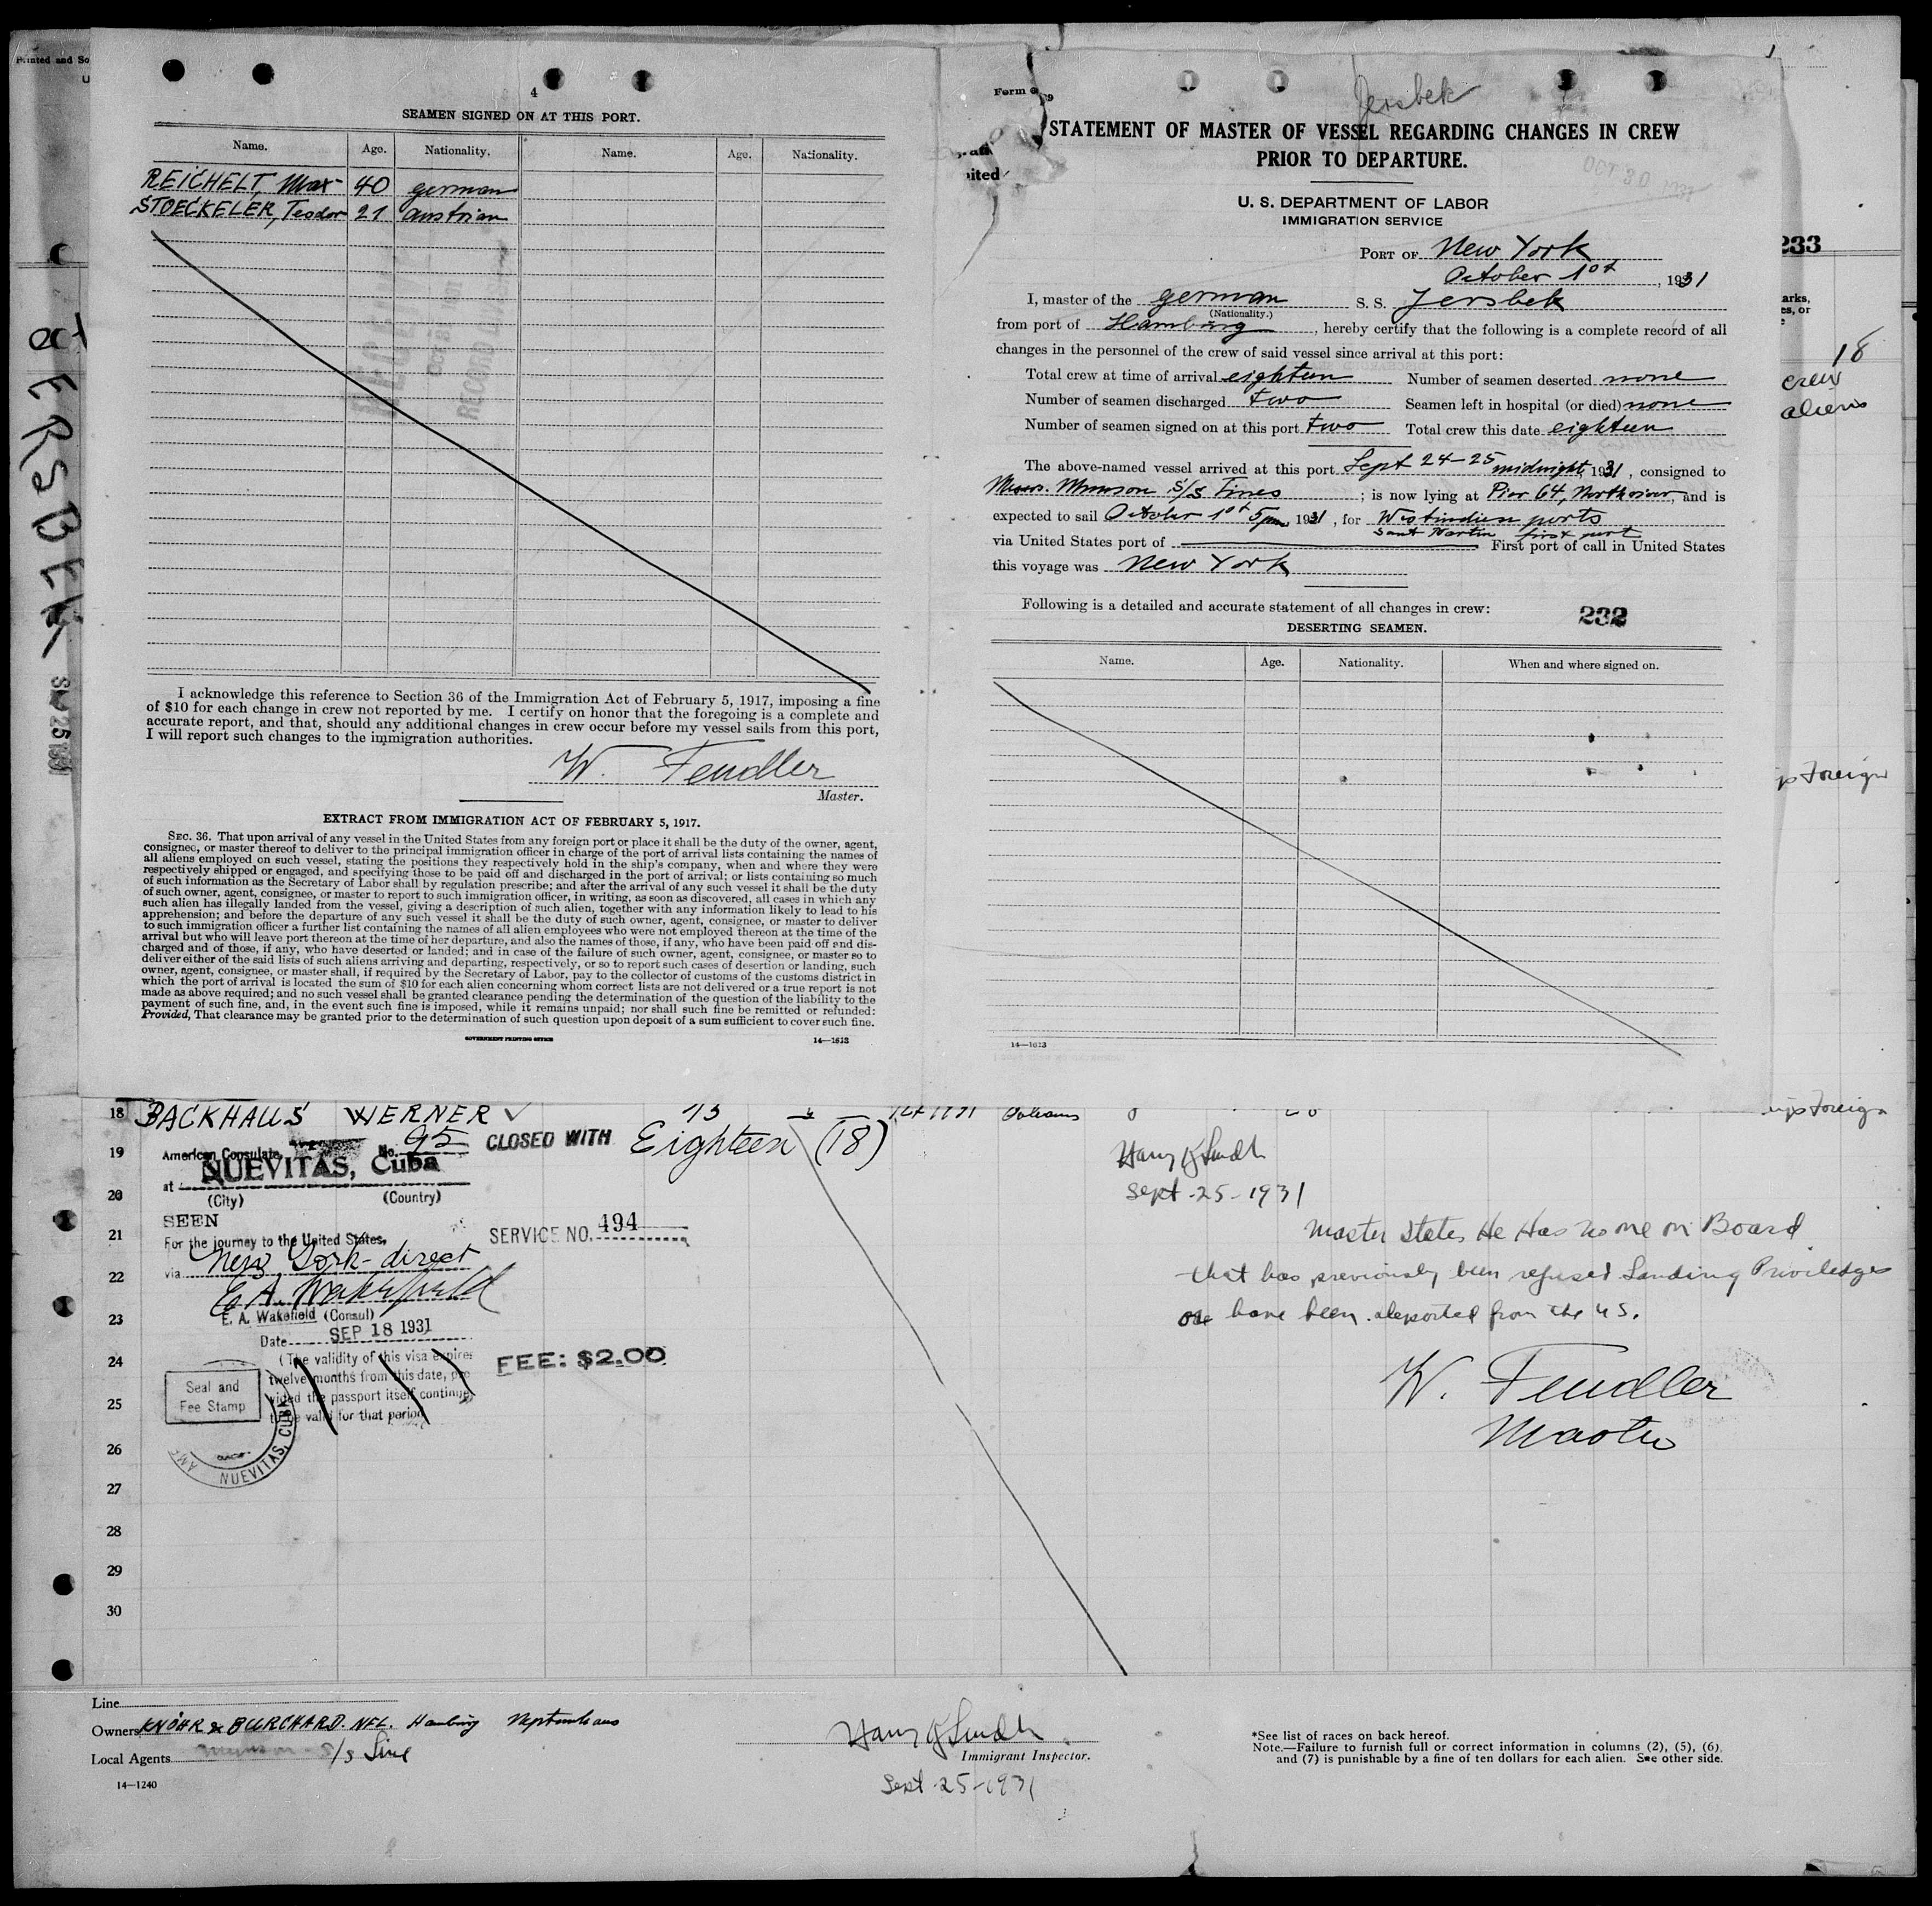 Printed and So
4
SEAMEN SIGNED ON AT THIS PORT.
Name. Age. Nationality. Name. Age. Nationality.
REICHELT, Max 40 german
STOECKELER, Teodor 21 austrian
I acknowledge this reference to Section 36 of the Immigration Act of February 5, 1917, imposing a fine
of $10 for each change in crew not reported by me. I certify on honor that the foregoing is a complete and
accurate report, and that, should any additional changes in crew occur before my vessel sails from this port,
I will report such changes to the immigration authorities.
W. Fendler
Master.
EXTRACT FROM IMMIGRATION ACT OF FEBRUARY 5, 1917.
SEC. 36. That upon arrival of any vessel in the United States from any foreign port or place it shall be the duty of the owner, agent,
consignee, or master thereof to deliver to the principal immigration officer in charge of the port of arrival lists containing the names of
all aliens employed on such vessel, stating the positions they respectively hold in the ship's company, when and where they were
respectively shipped or engaged, and specifying those to be paid off and discharged in the port of arrival; or lists containing so much
of such information as the Secretary of Labor shall by regulation prescribe; and after the arrival of any such vessel it shall be the duty
of such owner, agent, consignee, or master to report to such immigration officer, in writing, as soon as discovered, all cases in which any
such alien has illegally landed from the vessel, giving a description of such alien, together with any information likely to lead to his
apprehension; and before the departure of any such vessel it shall be the duty of such owner, agent, consignee, or master to deliver
to such immigration officer a further list containing the names of all alien employees who were not employed thereon at the time of the
arrival but who will leave port thereon at the time of her departure, and also the names of those, if any, who have been paid off and dis-
charged and of those, if any, who have deserted or landed; and in case of the failure of such owner, agent, consignee, or master so to
deliver either of the said lists of such aliens arriving and departing, respectively, or so to report such cases of desertion or landing, such
owner, agent, consignee, or master shall, if required by the Secretary of Labor, pay to the collector of customs of the customs district in
which the port of arrival is located the sum of $10 for each alien concerning whom correct lists are not delivered or a true report is not
made as above required; and no such vessel shall be granted clearance pending the determination of the question of the liability to the
payment of such fine, and, in the event such fine is imposed, while it remains unpaid; nor shall such fine be remitted or refunded:
Provided, That clearance may be granted prior to the determination of such question upon deposit of a sum sufficient to cover such fine.
GOVERNMENT PRINTING OFFICE 14—1613
JERSBEK
SEP 25 1931
Form
Jersbek
STATEMENT OF MASTER OF VESSEL REGARDING CHANGES IN CREW
PRIOR TO DEPARTURE.
OCT 30 1931
U. S. DEPARTMENT OF LABOR
IMMIGRATION SERVICE
PORT OF New York
October 1st, 1931
I, master of the german S. S. Jersbek
(Nationality.)
from port of Hamburg, hereby certify that the following is a complete record of all
changes in the personnel of the crew of said vessel since arrival at this port:
Total crew at time of arrival eighteen Number of seamen deserted none
Number of seamen discharged two Seamen left in hospital (or died) none
Number of seamen signed on at this port two Total crew this date eighteen
The above-named vessel arrived at this port Sept 24-25 midnight, 1931, consigned to
Messrs. Munson S/S Lines; is now lying at Pier 64, Northriver, and is
expected to sail October 1st 5pm 1931, for Westindien ports
first port
via United States port of First port of call in United States
this voyage was New York
Following is a detailed and accurate statement of all changes in crew:
232
DESERTING SEAMEN.
Name. Age. Nationality. When and where signed on.
14—1613
233
18
crew
aliens
18 BACKHAUS WERNER
19 American Consulate No. 95 CLOSED WITH Eighteen (18)
at NUEVITAS, Cuba
(City) (Country)
20
SEEN
21 For the journey to the United States, SERVICE NO. 494
via New York-direct
22
E A. Wakefield
E. A. Wakefield (Consul)
23
Date SEP 18 1931
24 (The validity of this visa expires FEE: $2.00
twelve months from this date, pro
vided the passport itself continues
to be valid for that period
Seal and
Fee Stamp
NUEVITAS, CUBA
25
26
27
28
29
30
Sept-25-1931
Master States He Has no one on Board
that has previously been refused Landing Priviledges
or have been deported from the U S.
W. Fendler
Master
Line
Owners KNÖHR & BURCHARD. NFL. Hamburg Neptunhaus
Local Agents Munson S/S Line
14—1240
Immigrant Inspector.
Sept 25-1931
*See list of races on back hereof.
Note.—Failure to furnish full or correct information in columns (2), (5), (6)
and (7) is punishable by a fine of ten dollars for each alien. See other side.